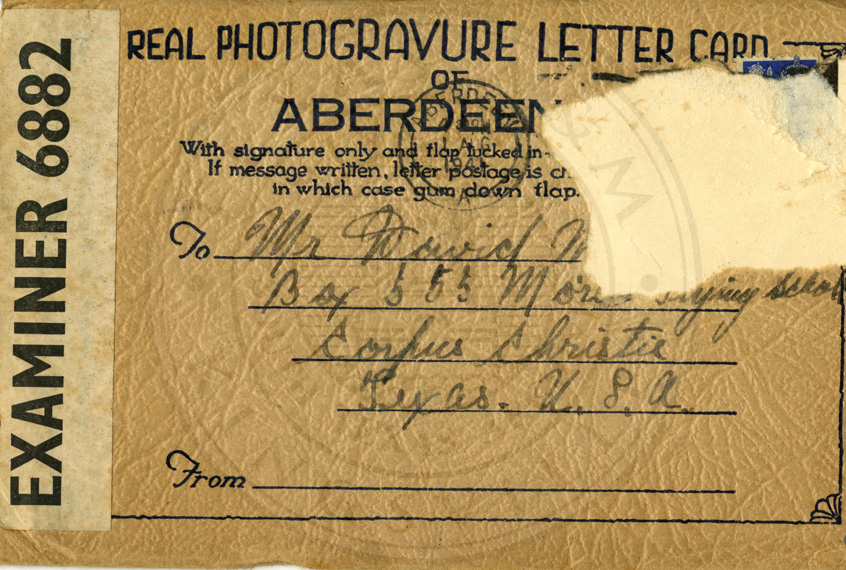 EXAMINER 6882
REAL PHOTOGRAVURE LETTER CARD
OF
ABERDEEN
With signature only and flap tucked in-
If message written, letter postage is ch
in which case gum down flap.
To Mr David
Box 555 Flying School
Corpus Christie
Texas. U. S. A.
From